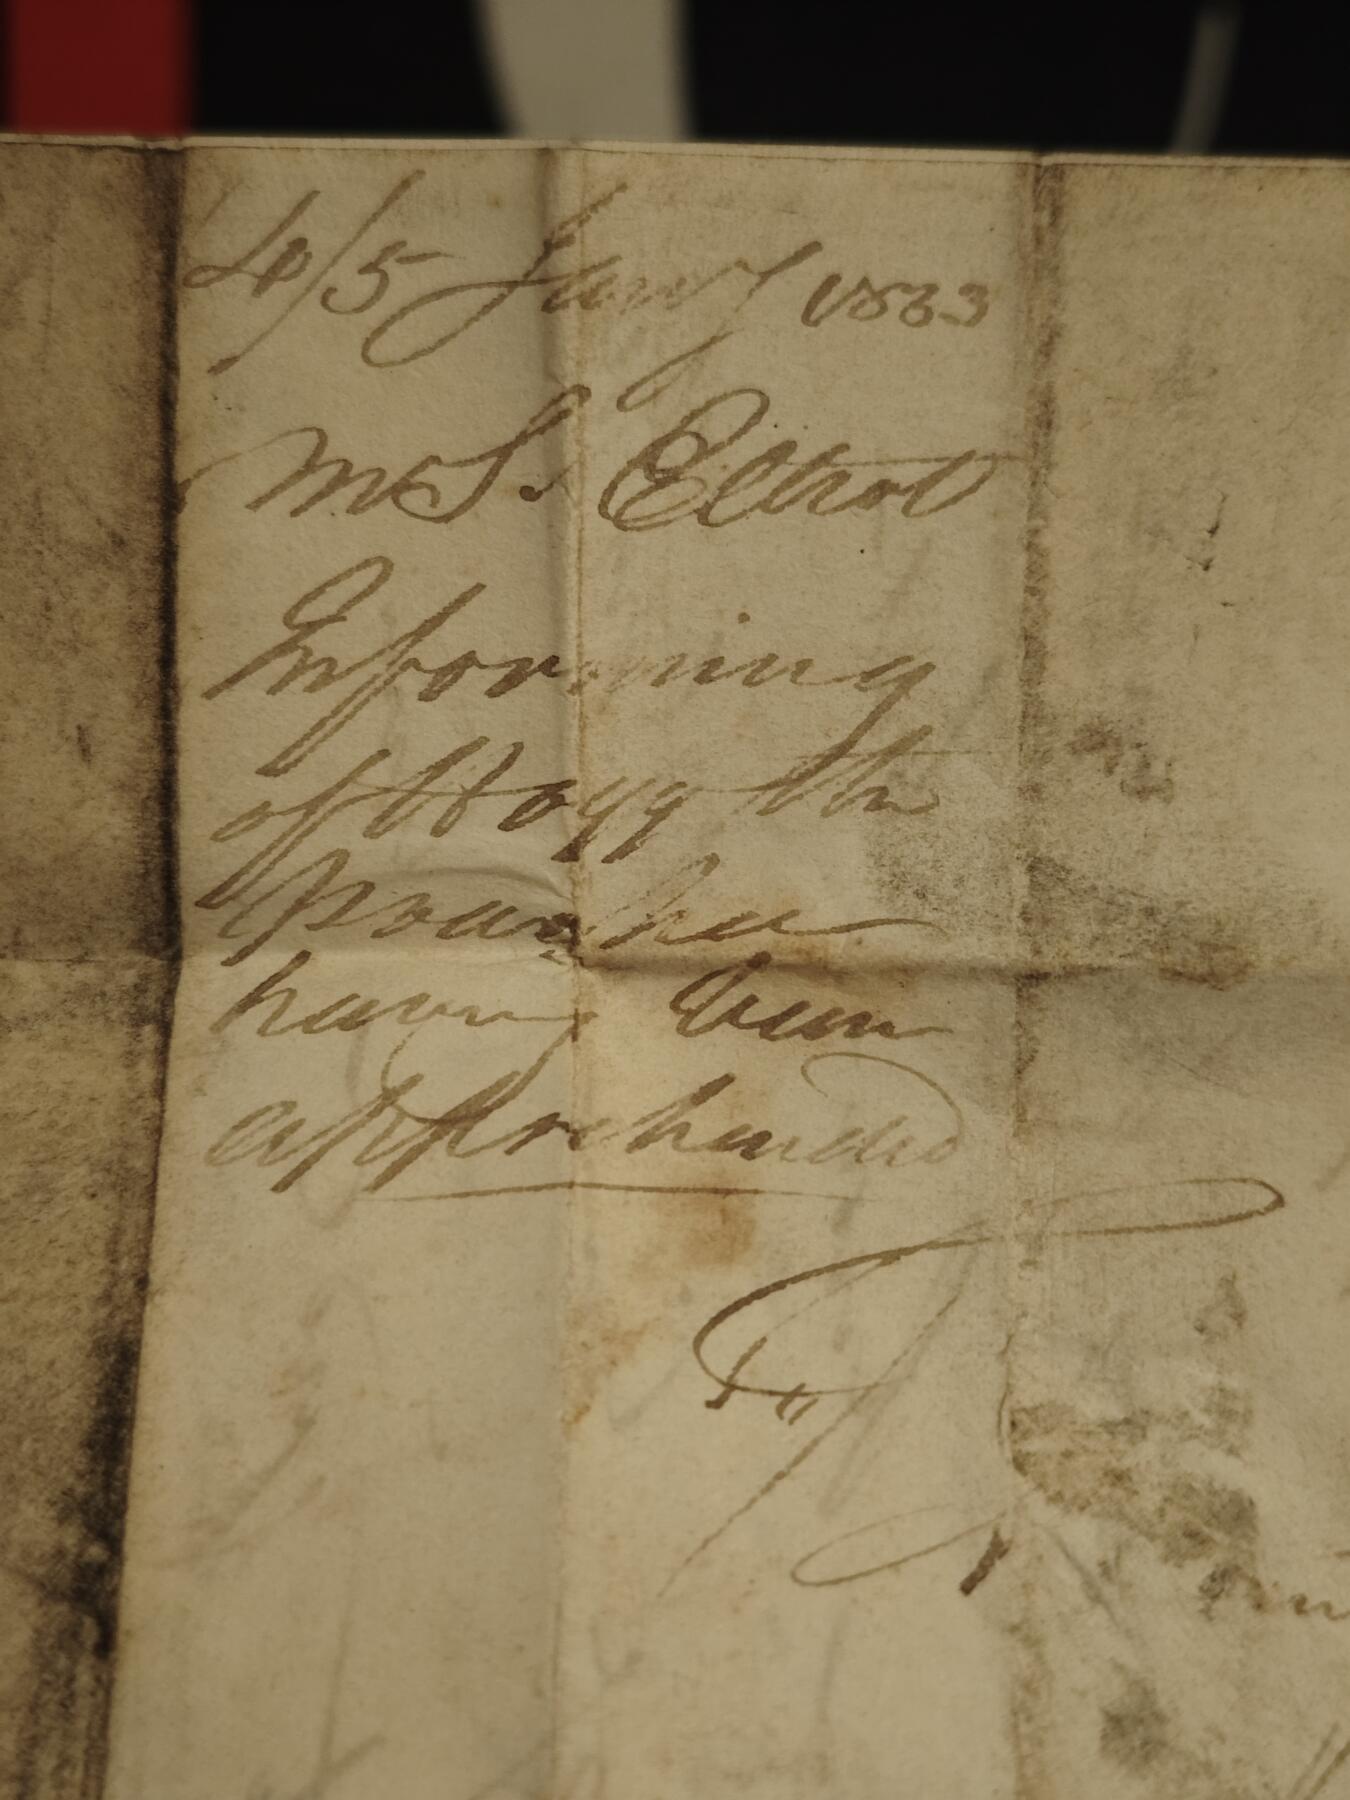 4/5 Jany 1833
Mr S. Elliot
Informing
of Hogg the
Poacher
having been
apprehended
To